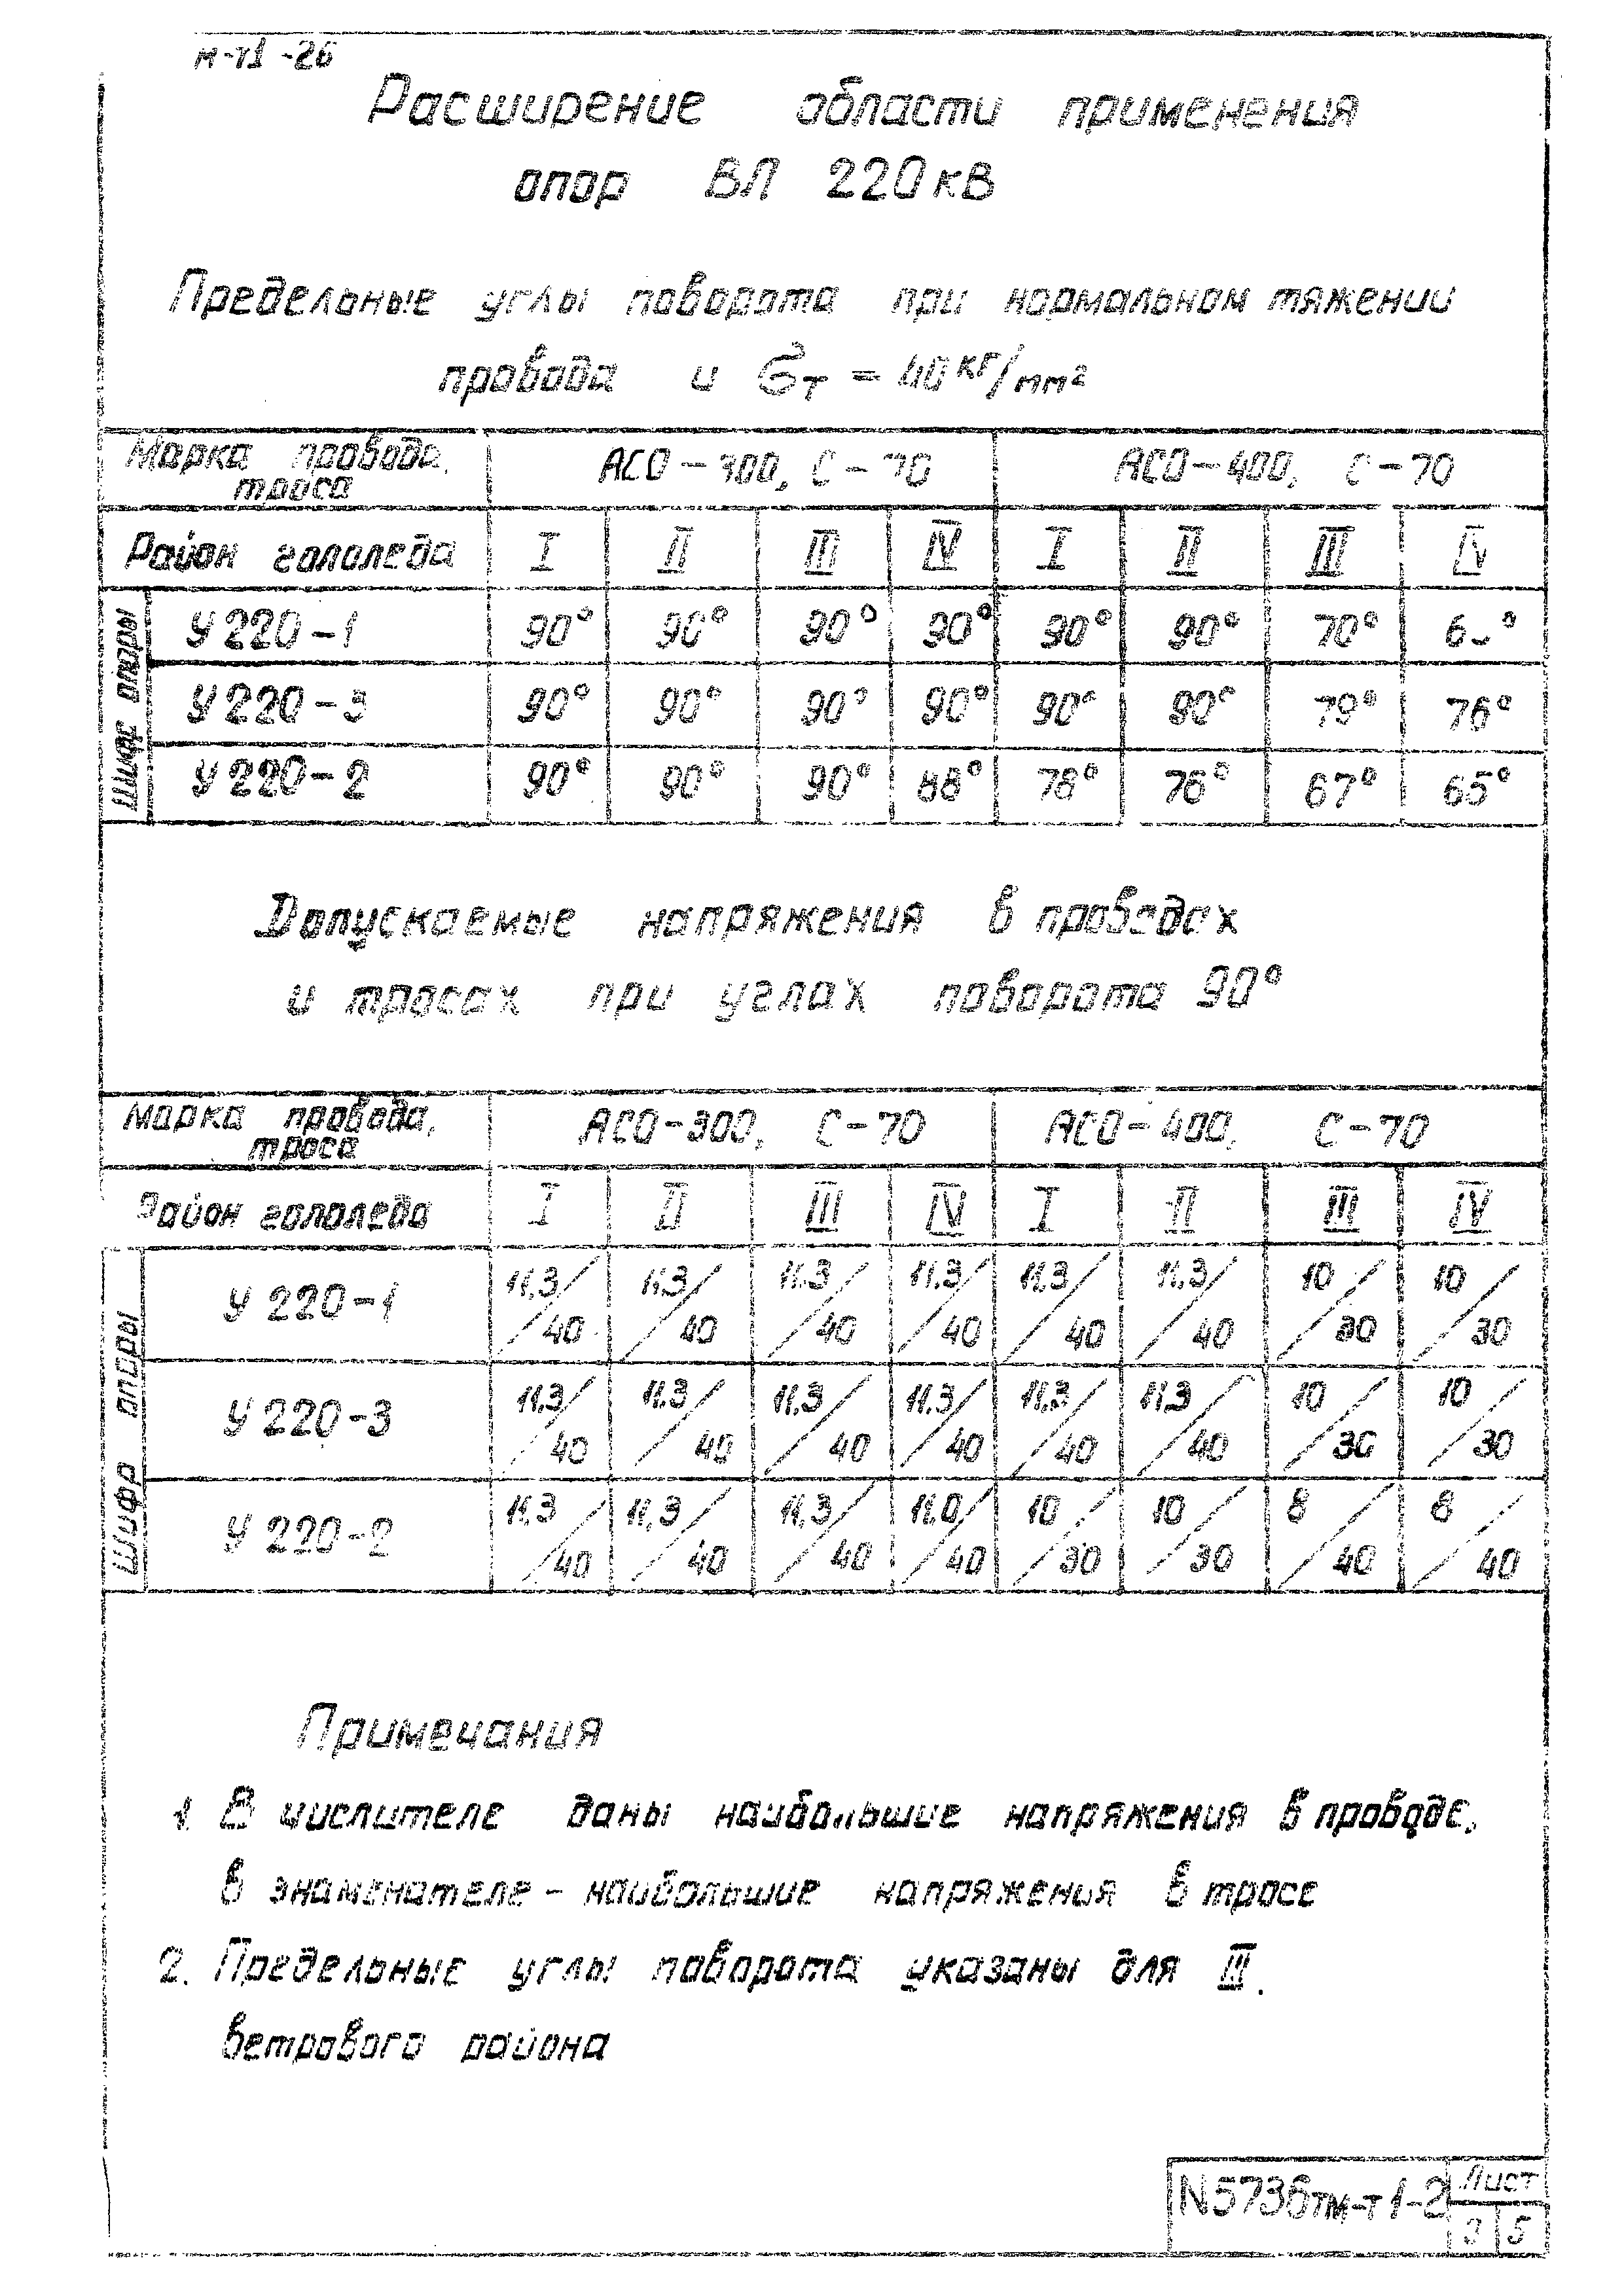 Расширение области применения
опор ВЛ 220кВ
Предельные углы поворота при нормальном тяжении
провода и Gт = 40 кг/мм²
Марка провода, троса АСО-300, С-70 АСО-400, С-70
Район гололеда I II III IV I II III IV
Шифр опоры
У220-1 90° 90° 90° 90° 90° 90° 70°
У220-3 90° 90° 90° 90° 90° 90° 79° 76°
У220-2 90° 90° 90° 88° 76° 76° 67° 65°
Допускаемые напряжения в проводах
и тросах при углах поворота 90°
Марка провода, троса АСО-300, С-70 АСО-400, С-70
Район гололеда I II III IV I II III IV
Шифр опоры
У220-1 11,3/40 11.3/40 11.3/40 11.3/40 11.3/40 11.3/40 10/30 10/30
У220-3 11.3/40 11.3/40 11.3/40 11.3/40 11.3/40 11.3/40 10/30 10/30
У220-2 11,3/40 11,3/40 11,3/40 11.0/40 10/30 10/30 8/40 8/40
Примечания
1. В числителе даны наибольшие напряжения в проводе,
в знаменателе - наибольшие напряжения в тросе
2. Предельные углы поворота указаны для III
ветрового района
N5736тм-т1-2 Лист
3 5